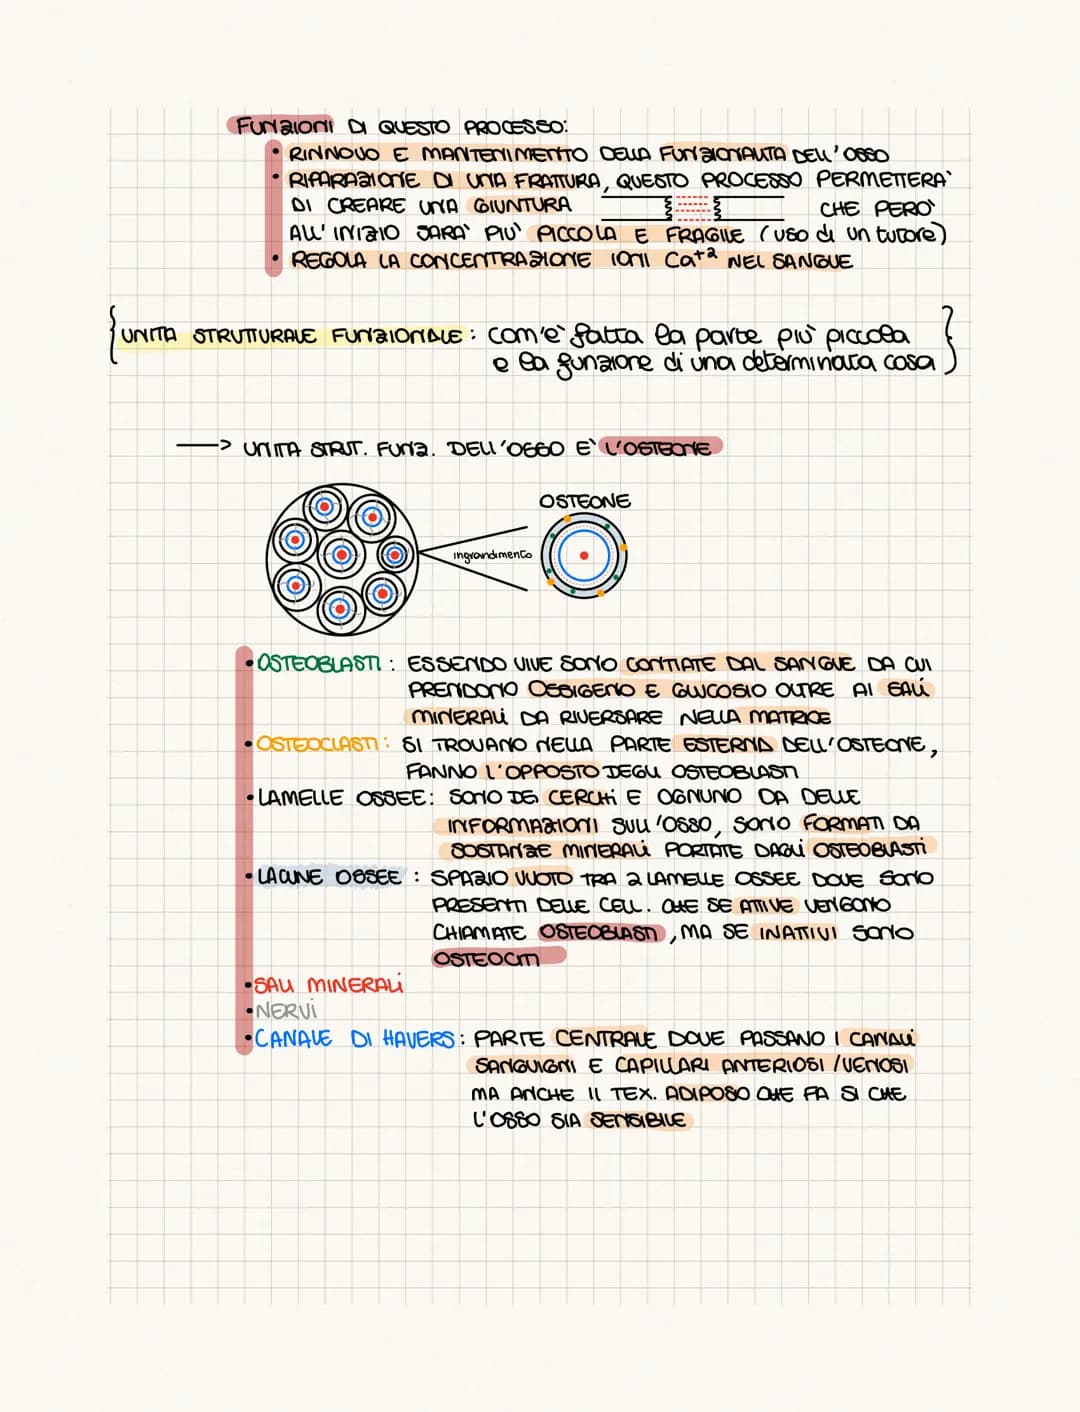 Funzioni DI QUESTO PROCESSO:
• RINNOVO E MANTENIMENTO DELLA FUNZIONALITA DELL'OSSO
• RIPARAZIONE DI UNA FRATTURA, QUESTO PROCESSO PERMETTERA'
DI CREARE UNA GIUNTURA CHE PERO'
ALL'INIZIO SARA' PIU' PICCOLA E FRAGILE (uso di un tutore)
• REGOLA LA CONCENTRAZIONE IONI Ca+2 NEL SANGUE
{UNITA STRUTTURALE FUNZIONALE: com'è fatta la parte più piccola
e la funzione di una determinata cosa}
—> UNITA STRUT. FUNZ. DELL'OSSO E' L'OSTEONE
OSTEONE
ingrandimento
• OSTEOBLASTI: ESSENDO VIVE SONO CONTATE DAL SANGUE DA CUI
PRENDONO OSSIGENO E GLUCOSIO OLTRE AI SALI
MINERALI DA RIVERSARE NELLA MATRICE
• OSTEOCLASTI: SI TROVANO NELLA PARTE ESTERNA DELL'OSTEONE,
FANNO L'OPPOSTO DEGLI OSTEOBLASTI
• LAMELLE OSSEE: SONO DEI CERCHI E OGNUNO DA DELLE
INFORMAZIONI SULL'OSSO, SONO FORMATI DA
SOSTANZE MINERALI PORTATE DAGLI OSTEOBLASTI
• LACUNE OSSEE: SPAZIO VUOTO TRA 2 LAMELLE OSSEE DOVE SONO
PRESENTI DELLE CELL. CHE SE ATTIVE VENGONO
CHIAMATE OSTEOBLASTI, MA SE INATTIVI SONO
OSTEOCITI
• SALI MINERALI
• NERVI
• CANALE DI HAVERS: PARTE CENTRALE DOVE PASSANO I CANALI
SANGUIGNI E CAPILLARI ANTERIOSI/VENOSI
MA ANCHE IL TEX. ADIPOSO CHE FA SI CHE
L'OSSO SIA SENSIBILE